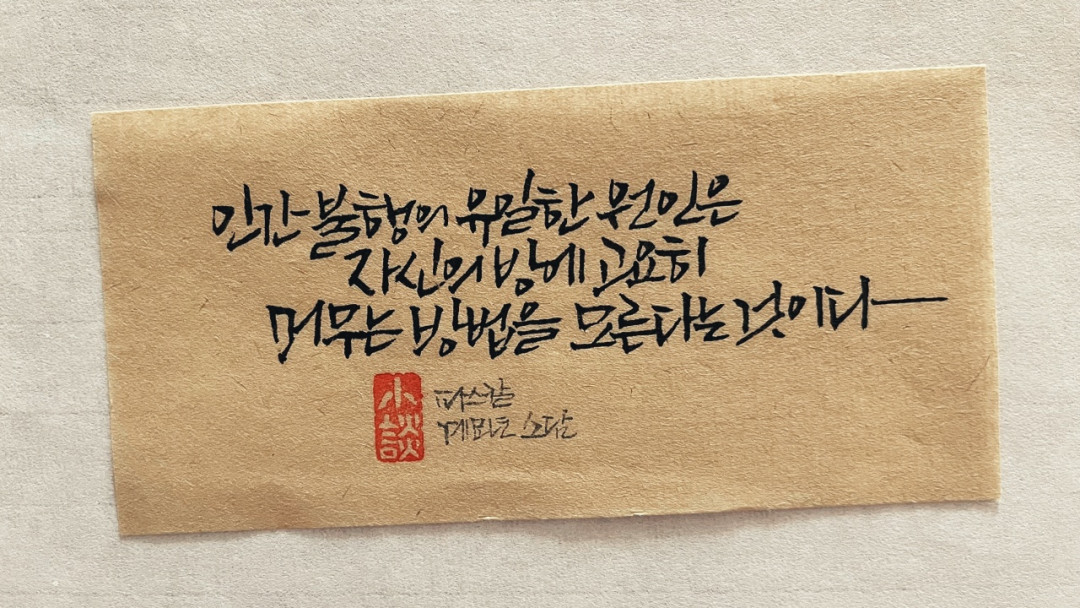 인간 불행의 유일한 원인은
자신의 방에 고요히
머무는 방법을 모른다는 것이다
小談
파스칼
소담